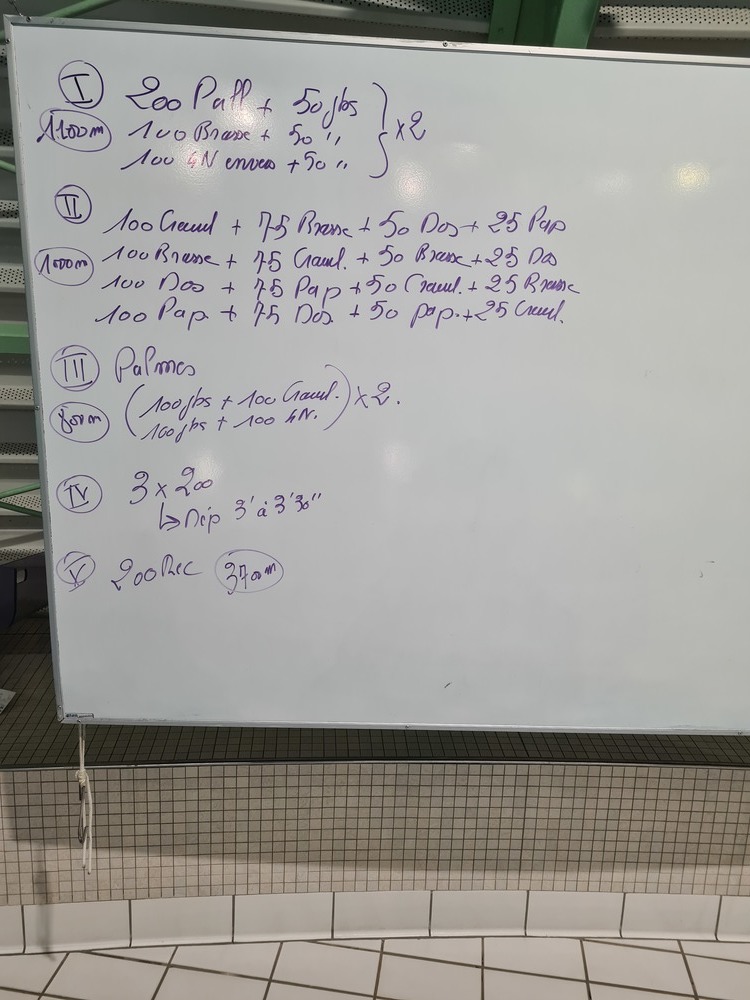 I 200 Pull + 50 jbs
1100m 100 Brasse + 50 "
100 4N envers + 50 " } x2
II 100 Crawl + 75 Brasse + 50 Dos + 25 Pap
1000m 100 Brasse + 75 Crawl. + 50 Brasse + 25 Dos
100 Dos + 75 Pap + 50 Crawl. + 25 Brasse
100 Pap. + 75 Dos + 50 pap. + 25 Crawl.
III Palmes
800m (100 jbs + 100 Crawl.
100 jbs + 100 4N.) x2.
IV 3 x 200
↳ Dép 3' à 3'30"
V 200 Rec 3700m